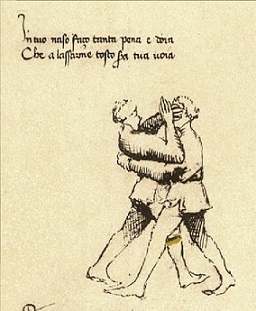 In tuo naso faço tanta pena e doia
Che a lassarme tosto tua uoia